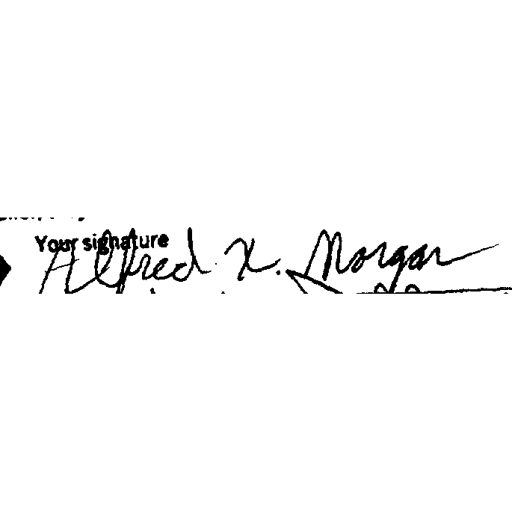 Your signature
Alfred X. Morgan